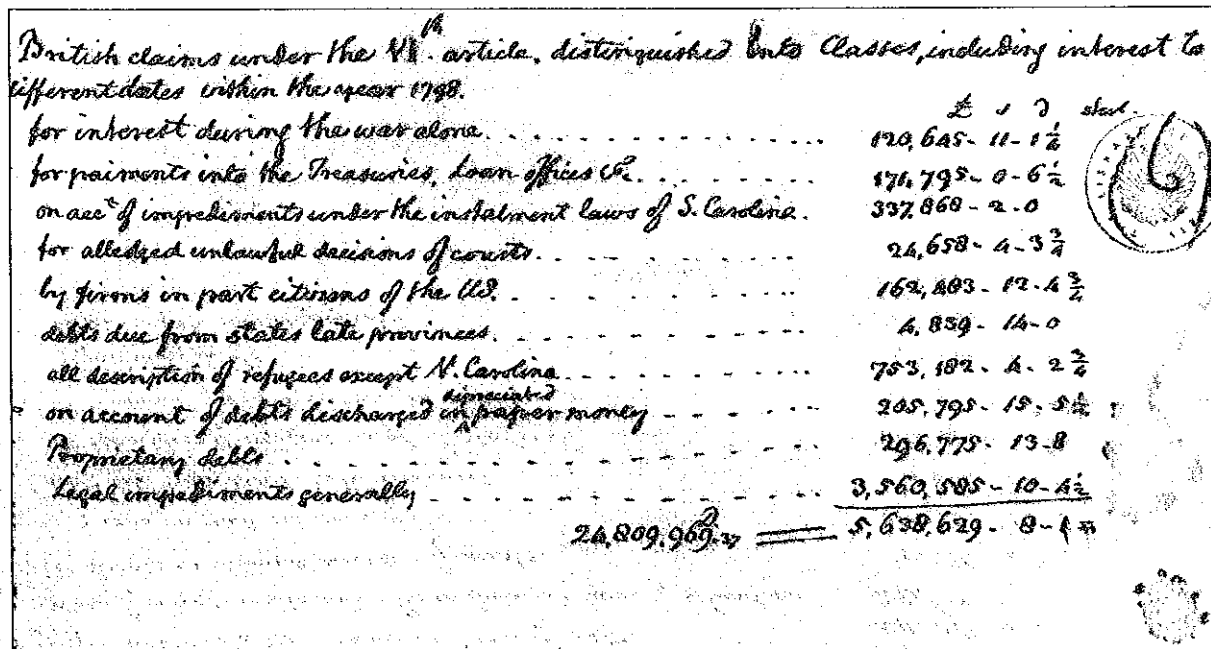 British claims under the VIth article, distinguished into Classes, including interest to
different dates within the year 1798.
£ s d sterl.
for interest during the war alone. 120,645- 11- 1 1/4
for paiments into the Treasuries, Loan offices &c. 176,795- 0- 6 1/2
on acct of impediments under the instalment laws of S. Carolina. 337,868- 2. 0
for alledged unlawful decisions of courts. 24,658- 4- 3 3/4
by firms in part citizens of the US. 162,403- 12- 4 3/4
debts due from states late provinces. 4,839- 14- 0
all description of refugees except N. Carolina. 753,182- 4- 2 3/4
depreciated
on account of debts discharged in ^ paper money 205,795- 15- 5 1/2
Proprietary debts 296,775- 13- 8
Legal impediments generally 3,560,585- 10- 4 1/2
24,809,969.37 = 5,638,629- 8- 1